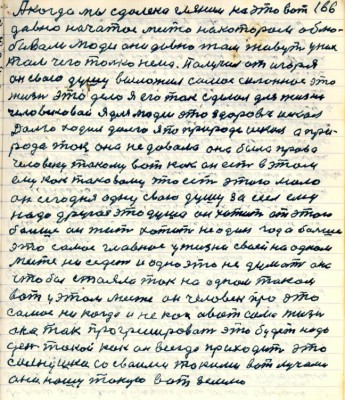 А когда мы с далека глянем на это вот 166
давно начатое место на котором облю-
бывали люди они давно там живут у них
там чего только нема. Получил от игоря
он свою душу выложил самое сильное это
жизнь это дело я его так сделал для жизни
человековой я для людей это здоровье искал
долго ходил долго это природе искал а при-
рода тож она не довала она была права
человеку такому вот как он есть в этом
ему как таковому то есть этого мало
он сегодня одну свою душу за ем ему
надо другая это душа он хотит от этого
больше он жить хотит не один год а больше
это самое главное у жизни своей на одном
месте не седет и одно это не думать оно
чтобы стояло так на одном таком
вот у этом месте он человек про это
самое не когда и не как свою жизни
она так прогресировать это будет надо
день такой как он всегда приходить это
солнушка со своими такими вот лучами
они нашу такую вот землю